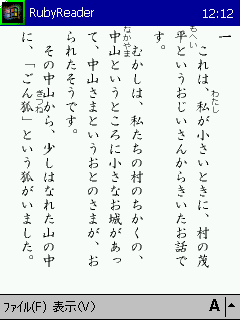 RubyReader 12:12
一
わたし
これは、私が小さいときに、村の茂
もへい
平というおじいさんからきいたお話で
す。
むかしは、私たちの村のちかくの、
なかやま
中山というところに小さなお城があっ
て、中山さまというおとのさまが、お
られたそうです。
その中山から、少しはなれた山の中
きつね
に、「ごん狐」という狐がいました。
ファイル(F) 表示(V) A